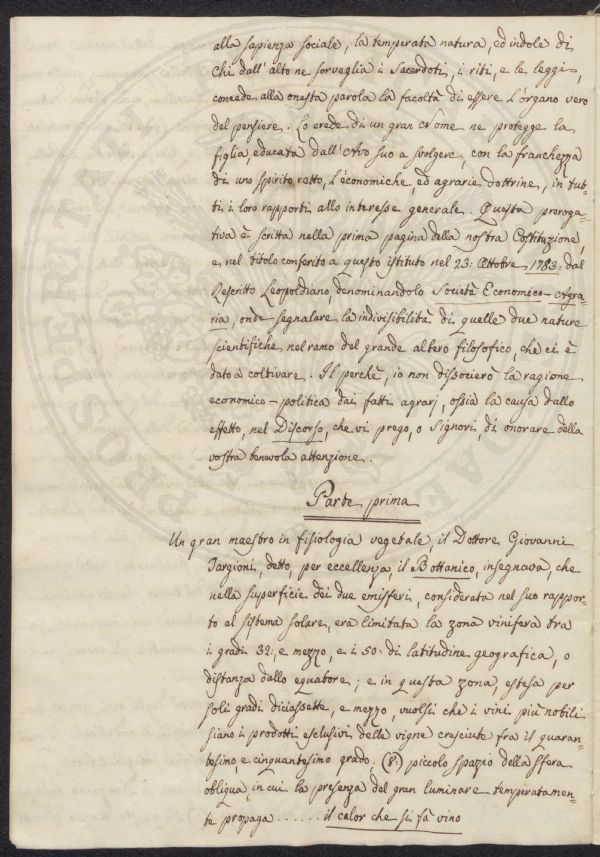 alla sapienza sociale, la temperata natura, ed indole di
chi dall'alto ne sorveglia i Sacerdoti, i riti, e le leggi,
concede alla onesta parola la facoltà di essere l'organo vero
del pensiere. Lo erede di un gran Nome ne protegge la
figlia, educata dall'Avo suo a svolgere, con la franchezza
di uno spirito retto, l'economiche, ed agrarie dottrine, in tut-
ti i loro rapporti allo interesse generale. Questa preroga-
tiva è scritta nella prima pagina della nostra Costituzione,
e nel titolo conferito a questo istituto nel 23: Ottobre 1783: dal
Rescritto Leopoldiano, denominandolo Società Economico-Agra-
ria, onde segnalare la indivisibilità di quelle due nature
scientifiche nel ramo del grande albero filosofico, che ci è
dato a coltivare. Il perchè, io non dissocierò la ragione
economico-politica dai fatti agrarj, ossia la causa dallo
effetto, nel Discorso, che vi prego, o Signori, di onorare della
vostra benevola attenzione.
Parte prima
Un gran maestro in fisiologia vegetale, il Dottore Giovanni
Targioni, detto, per eccellenza, il Bottanico, insegnava, che
nella superficie dei due emisferi, considerata nel suo rappor-
to al sistema solare, era limitata la zona vinifera tra
i gradi 32:, e mezzo, e i 50: di latitudine geografica, o
distanza dallo equatore; e in questa zona, estesa per
soli gradi diciassette, e mezzo, vuolsi che i vini più nobili
siano i prodotti esclusivi delle vigne cresciute fra il quaran-
tesimo, e cinquantesimo grado. (8) piccolo spazio della sfera
obliqua, in cui la presenza del gran luminare temperatamen-
te propaga ...... il calor che si fà vino
PROSPERITATI